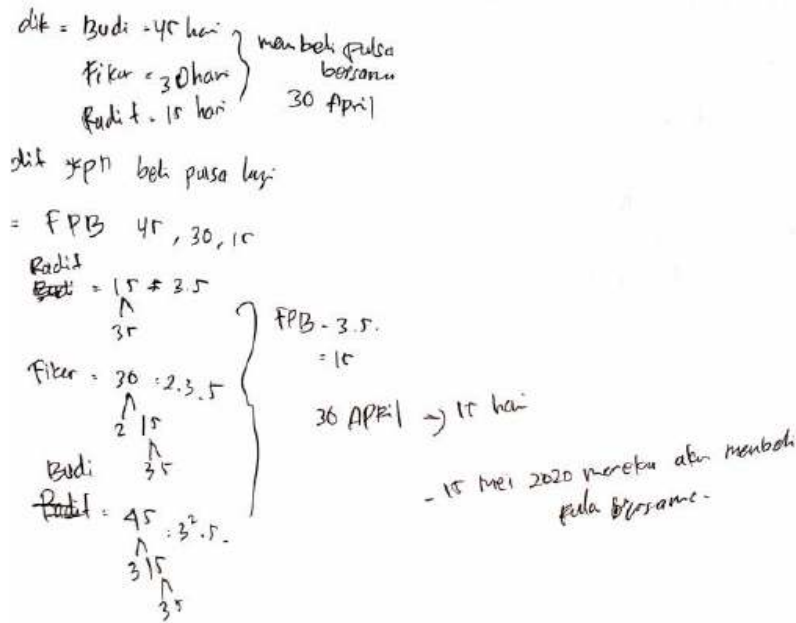 dik = Budi = 45 hari
Fiker = 30 hari
Radit = 15 hari
membeli pulsa
bersama
30 April
dit kpn beli pulsa lagi
= FPB 45, 30, 15
Radit
= 15 = 3.5
3 5
Fiker = 30 = 2.3.5
2 15
3 5
Budi
Radit = 45 = 3².5.
3 15
3 5
FPB = 3.5.
= 15
30 April → 15 hari
- 15 Mei 2020 mereka akan membeli
pulsa bersama.